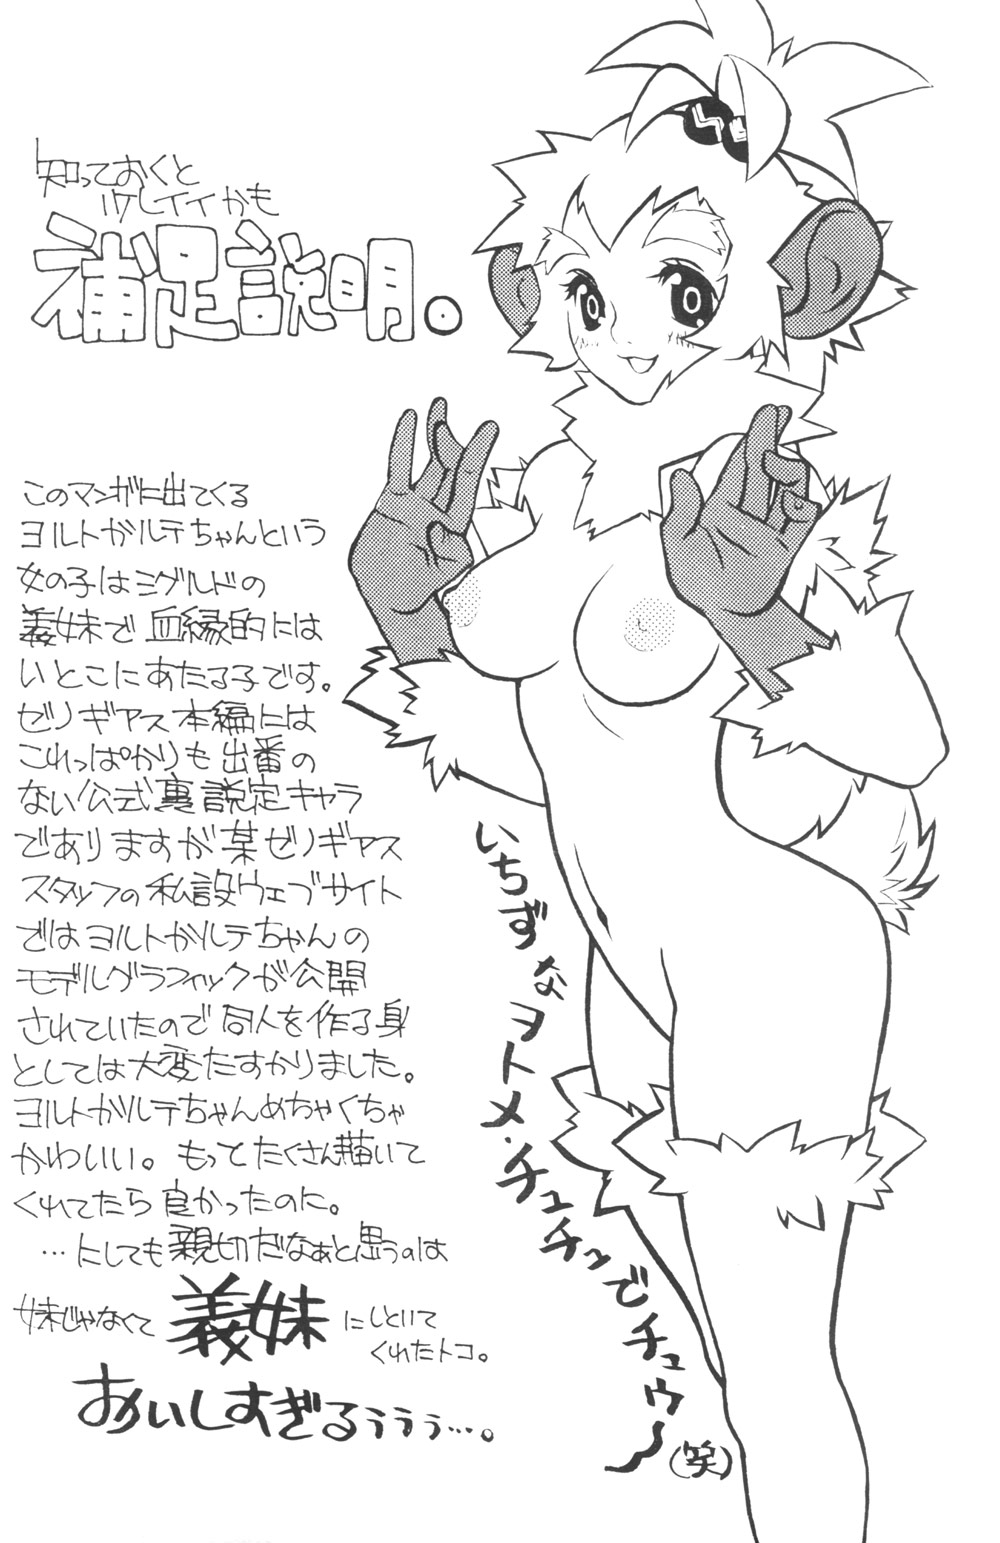 知っておくと
ウレしイイかも
補足説明。
このマンガに出てくる
ヨルトガルテちゃんという
女の子はミグルドの
義妹で血縁的には
いとこにあたる子です。
ゼノギアス本編には
これっぱかりも出番の
ない公式裏設定キャラ
でありますが某ゼノギアス
スタッフの私設ウェブサイト
ではヨルトガルテちゃんの
モデルグラフィックが公開
されていたので同人を作る身
としては大変たすかりました。
ヨルトガルテちゃんめちゃくちゃ
かわいい。もっとたくさん描いて
くれてたら良かったのに。
…にしても親切だなぁと思うのは
妹じゃなくて義妹にしといて
くれたトコ。
おいしすぎるぅぅぅ…。
いちずなヲトメ・チュチッでチュウ～(笑)